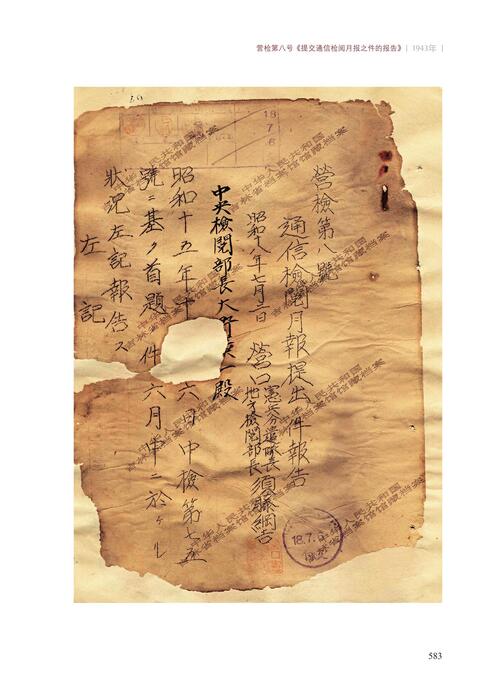 营检第八号《提交通信检阅月报之件的报告》 | 1943年 |
營檢第八號
通信檢閲月報提出件報告
昭和十八年七月三日
營口憲兵分遣隊長
地方檢閲部長
須藤綱吉
中央檢閲部長大野
一殿
昭和十五年十
六日中檢第七五
號ニ基ク首題
件六月中ニ於ケル
狀況左記報告ス
左記
18
7
6
18.7.6
中华人民共和国
吉林省档案馆馆藏档案
583